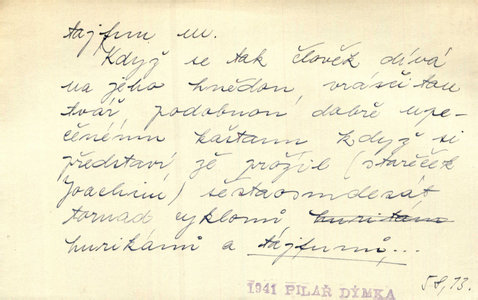 tajfun m.
Když se tak člověk dívá
na jeho hnědou, vrásčitou
tvář, podobnou dobře upe-
čenému kaštanu když si
představí že prožil (stařeček
Joachim) šestaosmdesát
tornad cyklonů huritanu
hurikánů a tájfunů...
1941 PILAŘ DÝMKA
58,13.